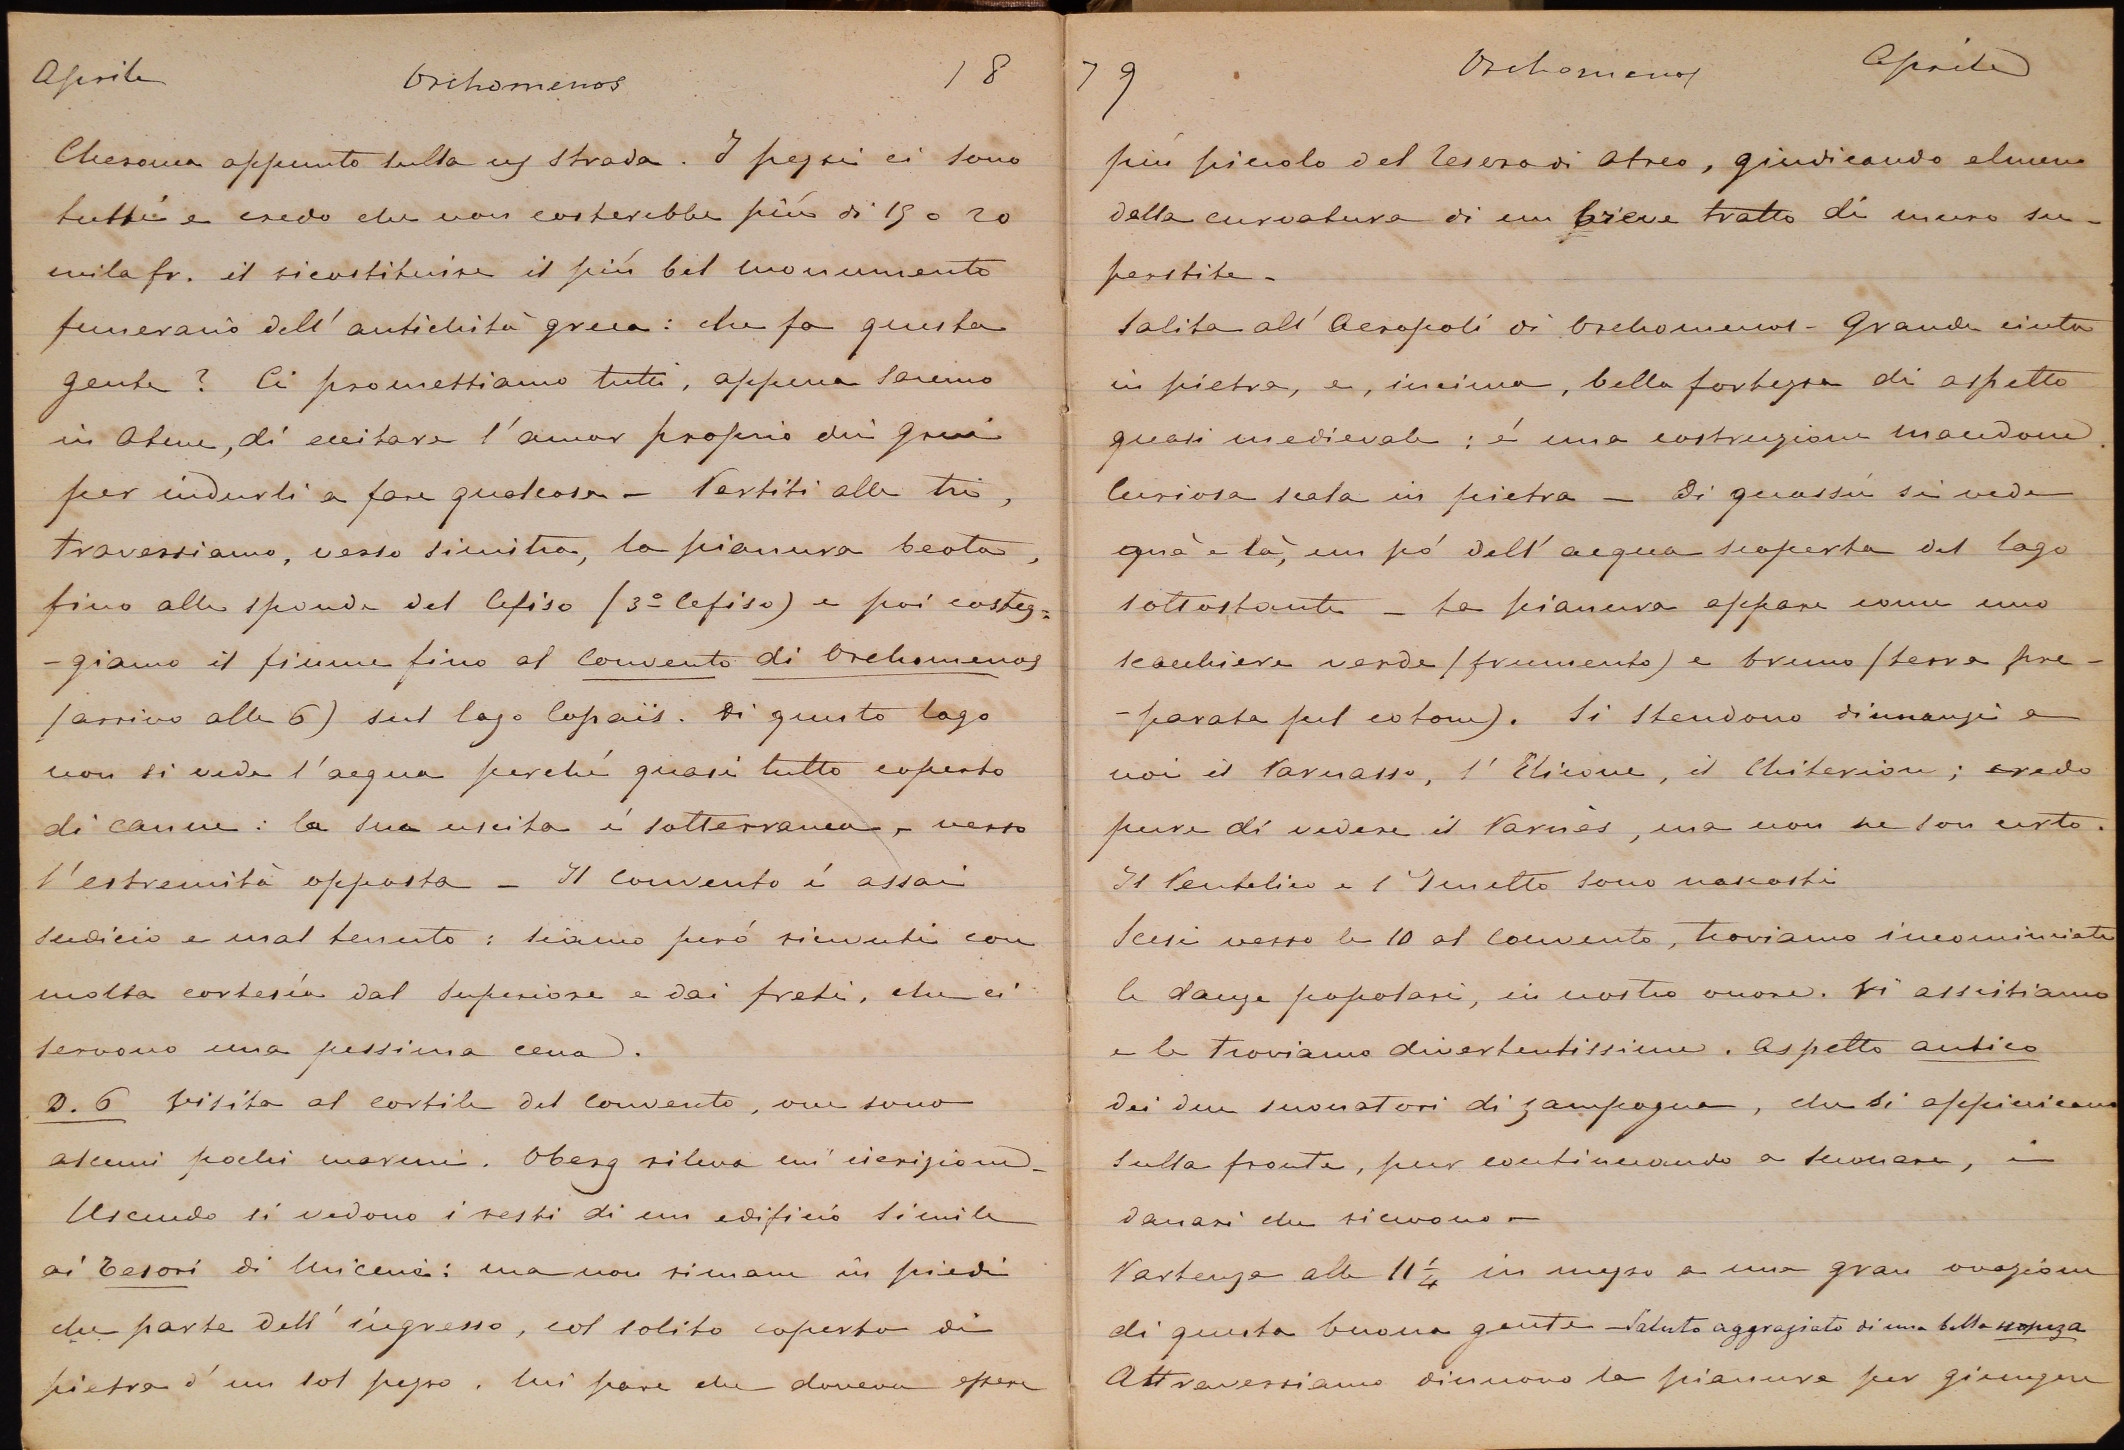 Aprile Orchomenos 18
Cheronea appunto sulla ns strada. I pezzi ci sono
tutti e credo che non costerebbe più di 15 o 20
mila fr. il ricostituire il più bel monumento
funerario dell'antichità greca: che fa questa
gente? Ci promettiamo tutti, appena saremo
in Atene, di eccitare l'amor proprio dei greci
per indurli a fare qualcosa – Partiti alle tre,
traversiamo, verso sinistra, la pianura beota,
fino alle sponde del Cefiso (3º Cefiso) e poi costeg=
-giamo il fiume fino al Convento di Orchomenos
(arrivo alle 6) sul lago Copaïs. Di questo lago
non si vede l'acqua perché quasi tutto coperto
di canne: la sua uscita é sotterranea, verso
l'estremità opposta – Il convento é assai
sudicio e mal tenuto: siamo peró ricevuti con
molta cortesía dal superiore e dai frati, che ci
servono una pessima cena.
D. 6 Visita al cortile del convento, ove sono
alcuni pochi marmi. Oberg rileva un'iscrizione –
Uscendo si vedono i resti di un edificio simile
ai Tesori di Micene: ma non rimane in piedi
che parte dell'ingresso, col solito coperto di
pietra d'un sol pezzo. Mi pare che doveva essere
79 Orchomenos Aprile
più piccolo del Tesoro di Atreo, giudicando almeno
dalla curvatura di un breve tratto di muro su-
perstite –
Salita all'Acropoli di Orchomenos – Grande cinta
in pietra, e, in cima, bella fortezza di aspetto
quasi medievale: é una costruzione macedone.
Curiosa scala in pietra – Di quassú si vede
quà e là, un pó dell'acqua scoperta del lago
sottostante – La pianura appare come uno
scacchiere verde (frumento) e bruno (terra pre-
-parata pel cotone). Si stendono dinnanzi a
noi il Parnasso, l'Elicone, il Chiterion; credo
pure di vedere il Parnès, ma non ne son certo.
Il Pentelico e l'Imetto sono nascosti
Scesi verso le 10 al convento, troviamo incominciate
le danze popolari, in nostro onore. Vi assistiamo
e le troviamo divertentissime. Aspetto antico
dei due suonatori di zampogna, che si appiccicano
sulla fronte, pur continuando a suonare, i
danari che ricevono –
Partenza alle 11 1/4 in mezzo a una gran ovazione
di questa buona gente – Saluto aggraziato di una bella
Attraversiamo dinuovo la pianura per giungere